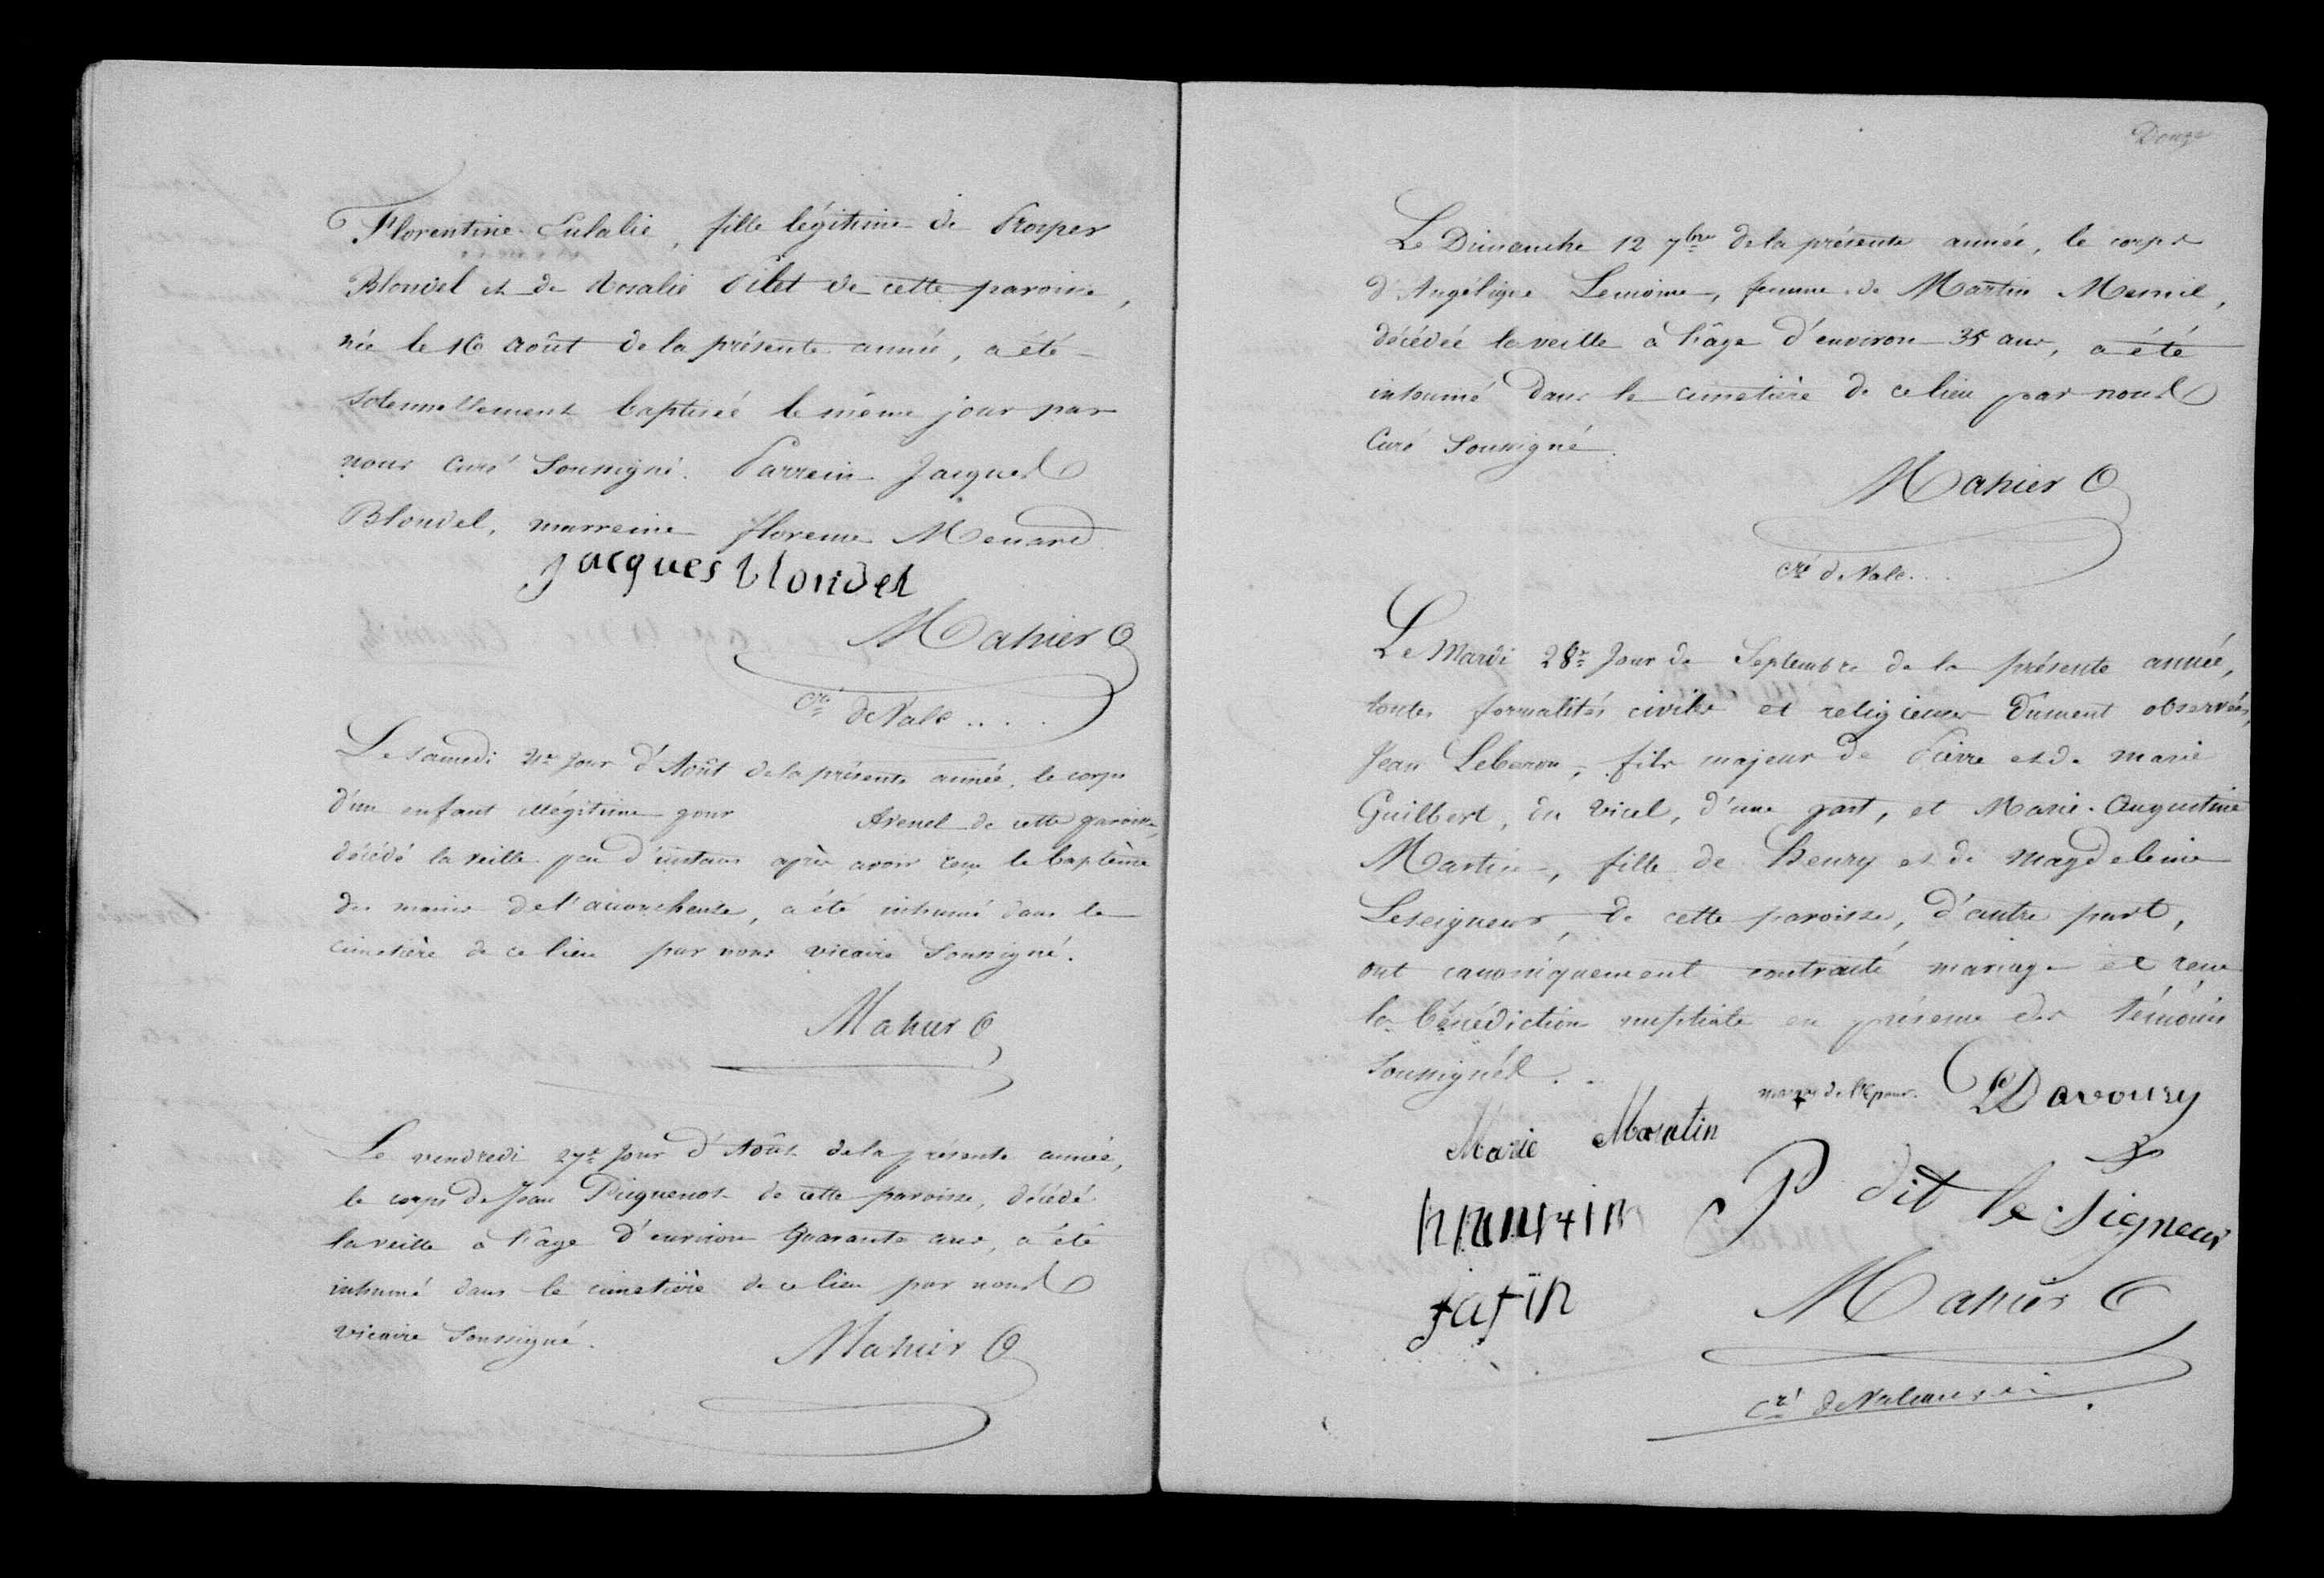 Florentine Eulalie, fille légitime de Prosper
Blondel et de Rosalie Pilet de cette paroisse,
née le 16 août de la présente année, a été
solennellement baptisée le même jour par
nous Curé Soussigné. Parrein Jacques
Blondel, marreine florence Menard
Jacques blondel
Mahier
cré de Valc....
Le samedi 21e Jour d'Août de la présente année, le corps
d'un enfant illégitime pour Avenel de cette paroisse,
décédé la veille peu d'instans après avoir reçu le baptême
des mains de l'accoucheuse, a été inhumé dans le
cimetière de ce lieu par nous vicaire Soussigné.
Mahier
Le vendredi 27e Jour d'Août de la présente année,
le corps de Jean Picquenot de cette paroisse, décédé
la veille à l'âge d'environ quarante ans, a été
inhumé dans le cimetière de ce lieu par nous
vicaire Soussigné.
Mahier
Douze
Le Dimanche 12 7bre de la présente année, le corps
d'Angélique Lemoine, femme de Martin Mesnil,
décédée la veille à l'âge d'environ 35 ans, a été
inhumé dans le cimetière de ce lieu par nous
Curé Soussigné.
Mahier
cré de Valc...
Le Mardi 28e Jour de Septembre de la présente année,
toutes formalités civiles et religieuses dument observées,
Jean Leberon, fils majeur de Pierre et de marie
Guilbert, du vicel, d'une part, et Marie-Augustine
Martin, fille de Henry et de Magdeleine
Leseigneur, de cette paroisse, d'autre part,
ont canoniquement contracté mariage et reçu
la bénédiction nuptiale en présence des témoins
Soussignés..
marque de l'époux. Davoury
+
Marie Martin
P dit le Signeur
fafin
Mahier
cré de Valcanville